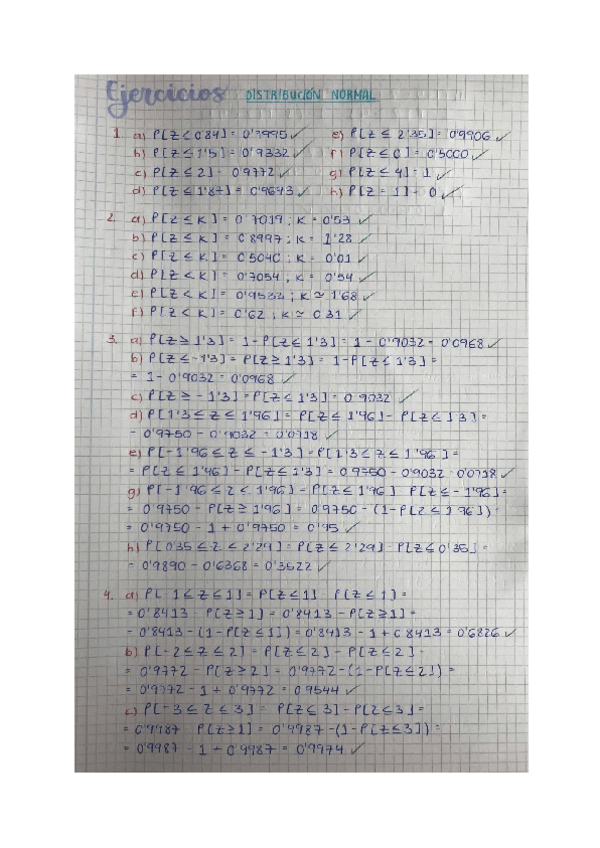 Ejercicios DISTRIBUCIÓN NORMAL
1. a) P[Z ≤ 0'84] = 0'7995 ✓ e) P[Z ≤ 2'35] = 0'9906 ✓
b) P[Z ≤ 1'5] = 0'9332 ✓ f) P[Z ≤ 0] = 0'5000 ✓
c) P[Z ≤ 2] = 0'9772 ✓ g) P[Z ≤ 4] = 1 ✓
d) P[Z ≤ 1'87] = 0'9693 ✓ h) P[Z = 1] = 0 ✓
2. a) P[Z ≤ K] = 0'7019 ; K = 0'53 ✓
b) P[Z ≤ K] = 0'8997 ; K = 1'28 ✓
c) P[Z ≤ K] = 0'5040 ; K = 0'01 ✓
d) P[Z < K] = 0'7054 ; K = 0'54 ✓
e) P[Z < K] = 0'9532 ; K ≃ 1'68 ✓
f) P[Z < K] = 0'62 ; K ≃ 0'31 ✓
3. a) P[Z ≥ 1'3] = 1 - P[Z ≤ 1'3] = 1 - 0'9032 = 0'0968 ✓
b) P[Z ≤ -1'3] = P[Z ≥ 1'3] = 1 - P[Z ≤ 1'3] =
= 1 - 0'9032 = 0'0968 ✓
c) P[Z ≥ -1'3] = P[Z ≤ 1'3] = 0'9032 ✓
d) P[1'3 ≤ Z ≤ 1'96] = P[Z ≤ 1'96] - P[Z ≤ 1'3] =
= 0'9750 - 0'9032 = 0'0718 ✓
e) P[-1'96 ≤ Z ≤ -1'3] = P[1'3 ≤ Z ≤ 1'96] =
= P[Z ≤ 1'96] - P[Z ≤ 1'3] = 0'9750 - 0'9032 = 0'0718 ✓
g) P[-1'96 ≤ Z ≤ 1'96] = P[Z ≤ 1'96] - P[Z ≤ -1'96] =
= 0'9750 - P[Z ≥ 1'96] = 0'9750 - (1 - P[Z ≤ 1'96]) =
= 0'9750 - 1 + 0'9750 = 0'95 ✓
h) P[0'35 ≤ Z ≤ 2'29] = P[Z ≤ 2'29] - P[Z ≤ 0'35] =
= 0'9890 - 0'6368 = 0'3522 ✓
4. a) P[-1 ≤ Z ≤ 1] = P[Z ≤ 1] - P[Z ≤ 1] =
= 0'8413 - P[Z ≥ 1] = 0'8413 - P[Z ≥ 1] =
= 0'8413 - (1 - P[Z ≤ 1]) = 0'8413 - 1 + 0'8413 = 0'6826 ✓
b) P[-2 ≤ Z ≤ 2] = P[Z ≤ 2] - P[Z ≤ 2] =
= 0'9772 - P[Z ≥ 2] = 0'9772 - (1 - P[Z ≤ 2]) =
= 0'9772 - 1 + 0'9772 = 0'9544 ✓
c) P[-3 ≤ Z ≤ 3] = P[Z ≤ 3] - P[Z ≤ 3] =
= 0'9987 - P[Z ≥ 1] = 0'9987 - (1 - P[Z ≤ 3]) =
= 0'9987 - 1 + 0'9987 = 0'9974 ✓